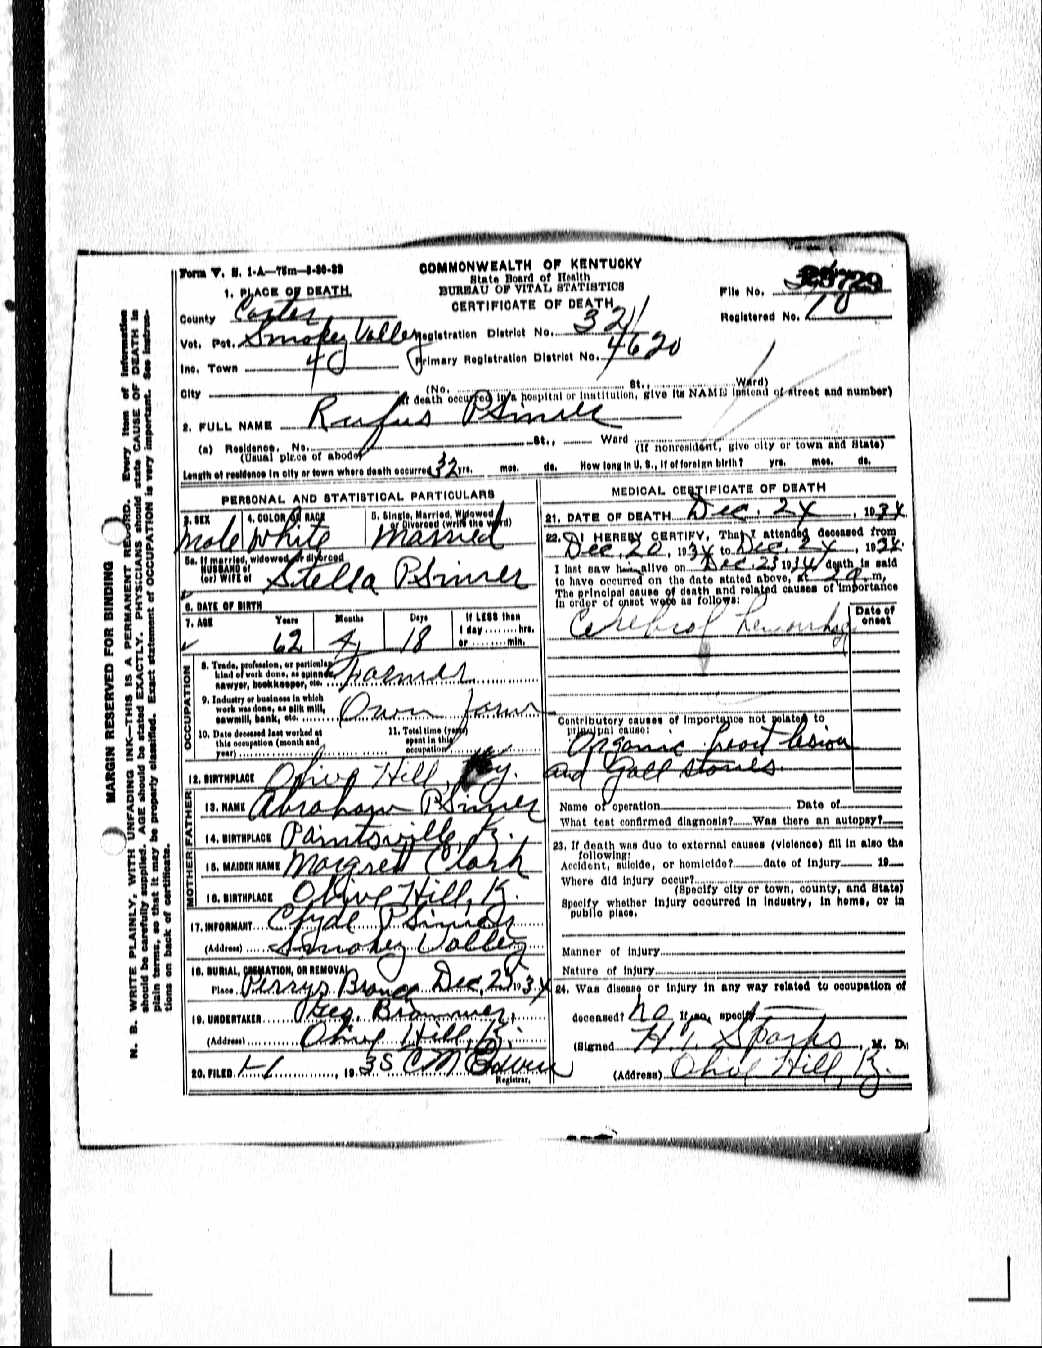 Form V. S. 1-A—75m—
COMMONWEALTH OF KENTUCKY
State Board of Health
BUREAU OF VITAL STATISTICS
CERTIFICATE OF DEATH
File No. 29729
Registered No. 70
1. PLACE OF DEATH
County Carter
Vot. Pct. Smokey Valley Registration District No. 321
Inc. Town Primary Registration District No. 4620
City (No. St., Ward)
death occurred in a hospital or institution, give its NAME instead of street and number)
2. FULL NAME Rufus P
(a) Residence. No. St., Ward
(Usual place of abode) (If nonresident, give city or town and State)
Length of residence in city or town where death occurred 32 yrs. mos. ds. How long in U. S., if of foreign birth? yrs. mos. ds.
PERSONAL AND STATISTICAL PARTICULARS
3. SEX Male
4. COLOR OR RACE White
5. Single, Married, Widowed or Divorced (write the word) Married
5a. If married, widowed or divorced
HUSBAND of
(or) WIFE of Stella P
6. DATE OF BIRTH
7. AGE Years 62 Months 4 Days 18 If LESS than
1 day ........ hrs.
or ........ min.
OCCUPATION
8. Trade, profession, or particular
kind of work done, as spinner,
sawyer, bookkeeper, etc. Farmer
9. Industry or business in which
work was done, as silk mill,
sawmill, bank, etc. Own farm
10. Date deceased last worked at
this occupation (month and
year)
11. Total time (years)
spent in this
occupation
12. BIRTHPLACE Olive Hill, Ky.
FATHER
13. NAME Abraham P
14. BIRTHPLACE Paintsville, K.
MOTHER
15. MAIDEN NAME Margret Clark
16. BIRTHPLACE Olive Hill, K.
17. INFORMANT Clyde P
(Address) Smokey Valley
18. BURIAL, CREMATION, OR REMOVAL
Place Perrys Branch Dec. 25 1934
19. UNDERTAKER Geo. Brammer
(Address) Olive Hill, K.
20. FILED 1-1, 1935 C M
Registrar.
MEDICAL CERTIFICATE OF DEATH
21. DATE OF DEATH Dec. 24, 1934
22. I HEREBY CERTIFY, That I attended deceased from
Dec. 20, 1934 to Dec. 24, 1934
I last saw him alive on Dec. 23 1934 death is said
to have occurred on the date stated above, at 2 a m,
The principal cause of death and related causes of importance
in order of onset were as follows:
Date of onset
Cerebral hemorrhage
Contributory causes of importance not related to
principal cause:
Organic heart lesion
and Gall stones
Name of operation Date of
What test confirmed diagnosis? Was there an autopsy?
23. If death was due to external causes (violence) fill in also the
following:
Accident, suicide, or homicide? date of injury 19
Where did injury occur?
(Specify city or town, county, and State)
Specify whether injury occurred in industry, in home, or in
public place.
Manner of injury
Nature of injury
24. Was disease or injury in any way related to occupation of
deceased? No If so, specify
(Signed H. T. Sparks, M. D.
(Address) Olive Hill, K.
MARGIN RESERVED FOR BINDING
N. B. WRITE PLAINLY, WITH UNFADING INK—THIS IS A PERMANENT RECORD. Every item of information
should be carefully supplied. AGE should be stated EXACTLY. PHYSICIANS should state CAUSE OF DEATH in
plain terms, so that it may be properly classified. Exact statement of OCCUPATION is very important. See instruc-
tions on back of certificate.